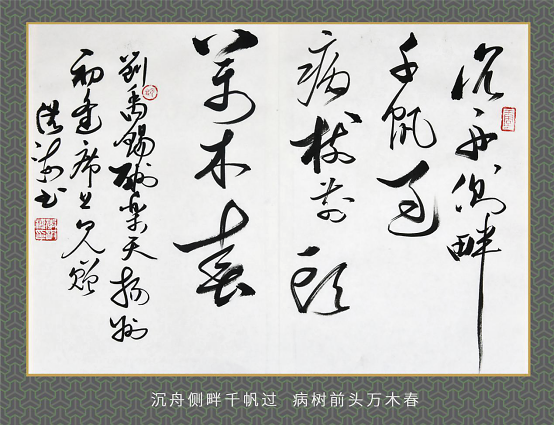 沉舟侧畔
千帆过
病树前头
萬木春
劉禹锡酬樂天揚州
初逢席上見赠
沉舟侧畔千帆过 病树前头万木春